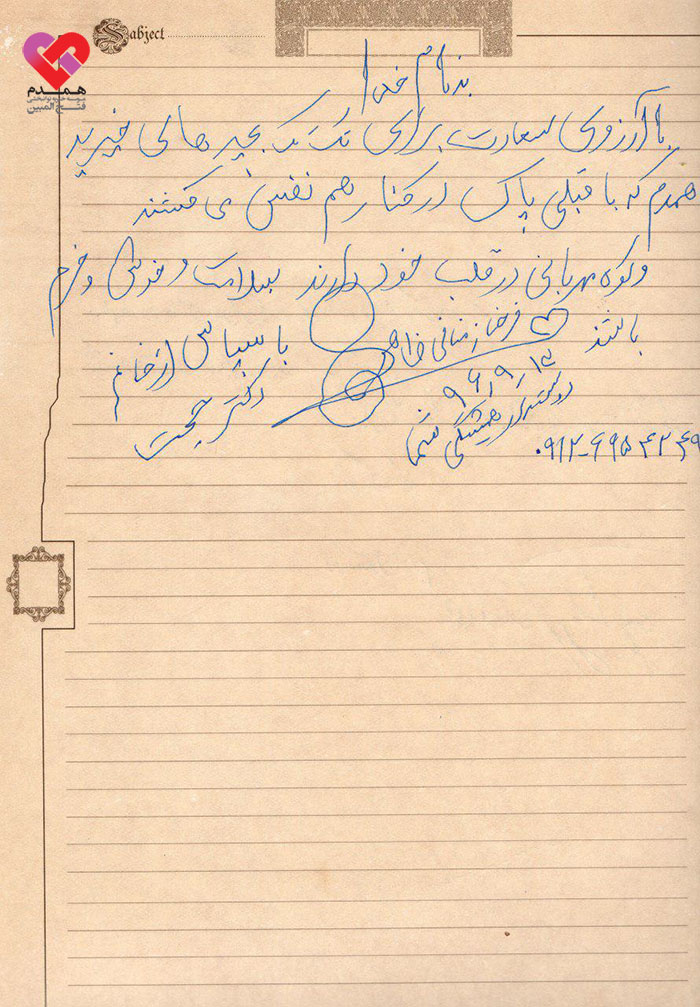 Sabject
همدم
موسسه خیریه توانبخشی
فتح المبین
بنام خدا
با آرزوی سعادت برای تک تک بچه های خیریه
همدم که با قلبی پاک در کنار هم نفس می کشند
و کوه مهربانی در قلب خود دارند سلامت و خوش و خرم
باشند
با سپاس از خانم
دکتر حجت
۹۶/۹/۱۳
دوستدار همیشگی شما